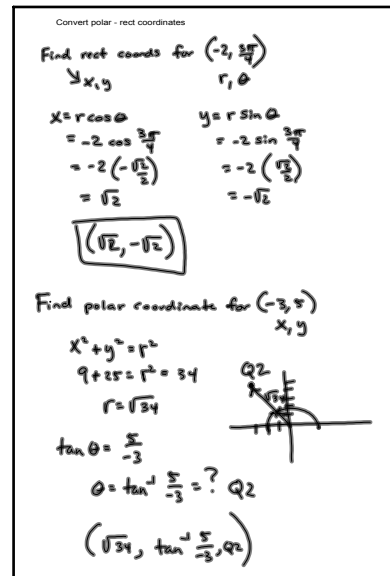 Convert polar - rect coordinates
Find rect coords for (-2, 3π/4)
↘x,y r, θ
x = r cos θ y = r sin θ
= -2 cos 3π/4 = -2 sin 3π/4
= -2 (-√2/2) = -2 (√2/2)
= √2 = -√2
(√2, -√2)
Find polar coordinate for (-3, 5)
x, y
x² + y² = r²
9 + 25 = r² = 34
r = √34
Q2
√34
tan θ = 5/-3
θ = tan⁻¹ 5/-3 = ? Q2
(√34, tan⁻¹ 5/-3, Q2)